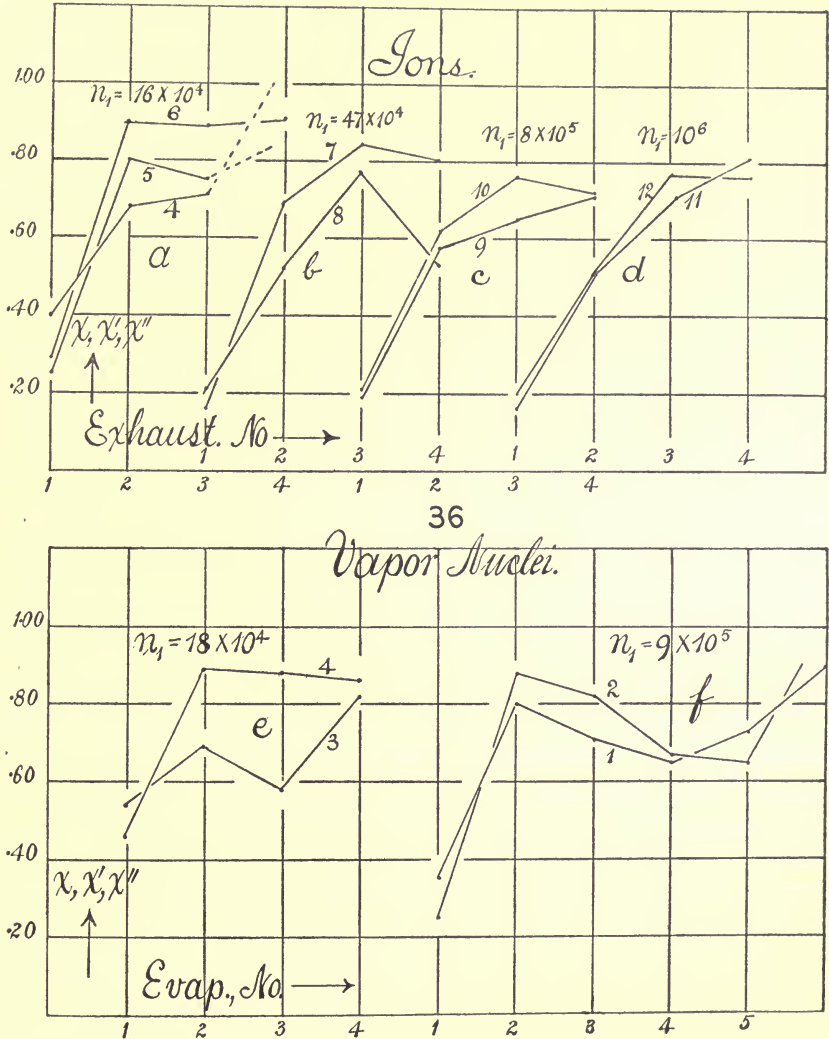 Ions.
1.00
.80
.60
.40
.20
n₁= 16 X 10⁴
6
5
4
a
n₁= 47 X 10⁴
7
8
b
n₁= 8 X 10⁵
10
9
c
n₁= 10⁶
12
11
d
χ, χ', χ''
Exhaust. No
1 2 3 4
1 2 3 4
1 2 3 4
1 2 3 4
36
Vapor Nuclei.
1.00
.80
.60
.40
.20
n₁ = 18 X 10⁴
4
3
e
n₁ = 9 X 10⁵
2
1
f
χ, χ', χ''
Evap., No.
1 2 3 4 1 2 3 4 5